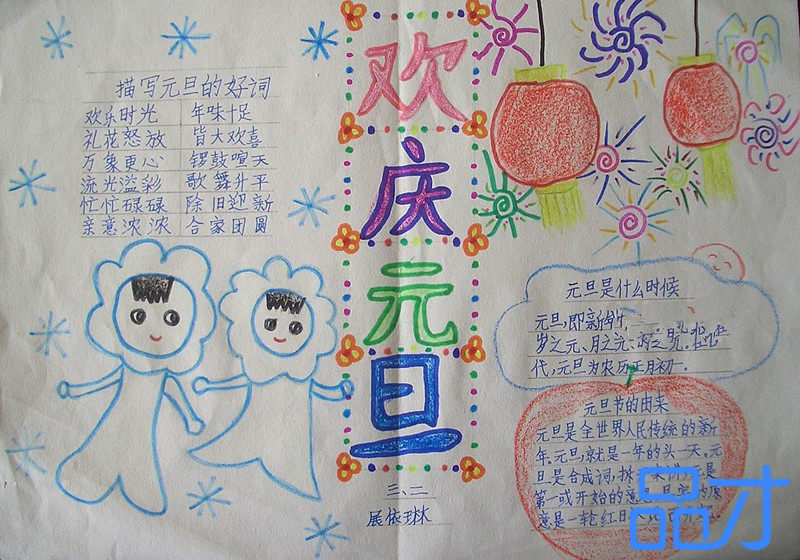 描写元旦的好词
欢乐时光 年味十足
礼花怒放 皆大欢喜
万象更心 锣鼓喧天
流光溢彩 歌舞升平
忙忙碌碌 除旧迎新
亲意浓浓 合家团圆
欢
庆
元
旦
三、二
展依琳
元旦是什么时候
元旦,即新年,
岁之元、月之元、
代,元旦为农历正月初一.
元旦节的由来
元旦是全世界人民传统的新
年、元旦,就是一年的头一天、元
旦是合成词,
第一或开始的意
意是一轮红日
品才